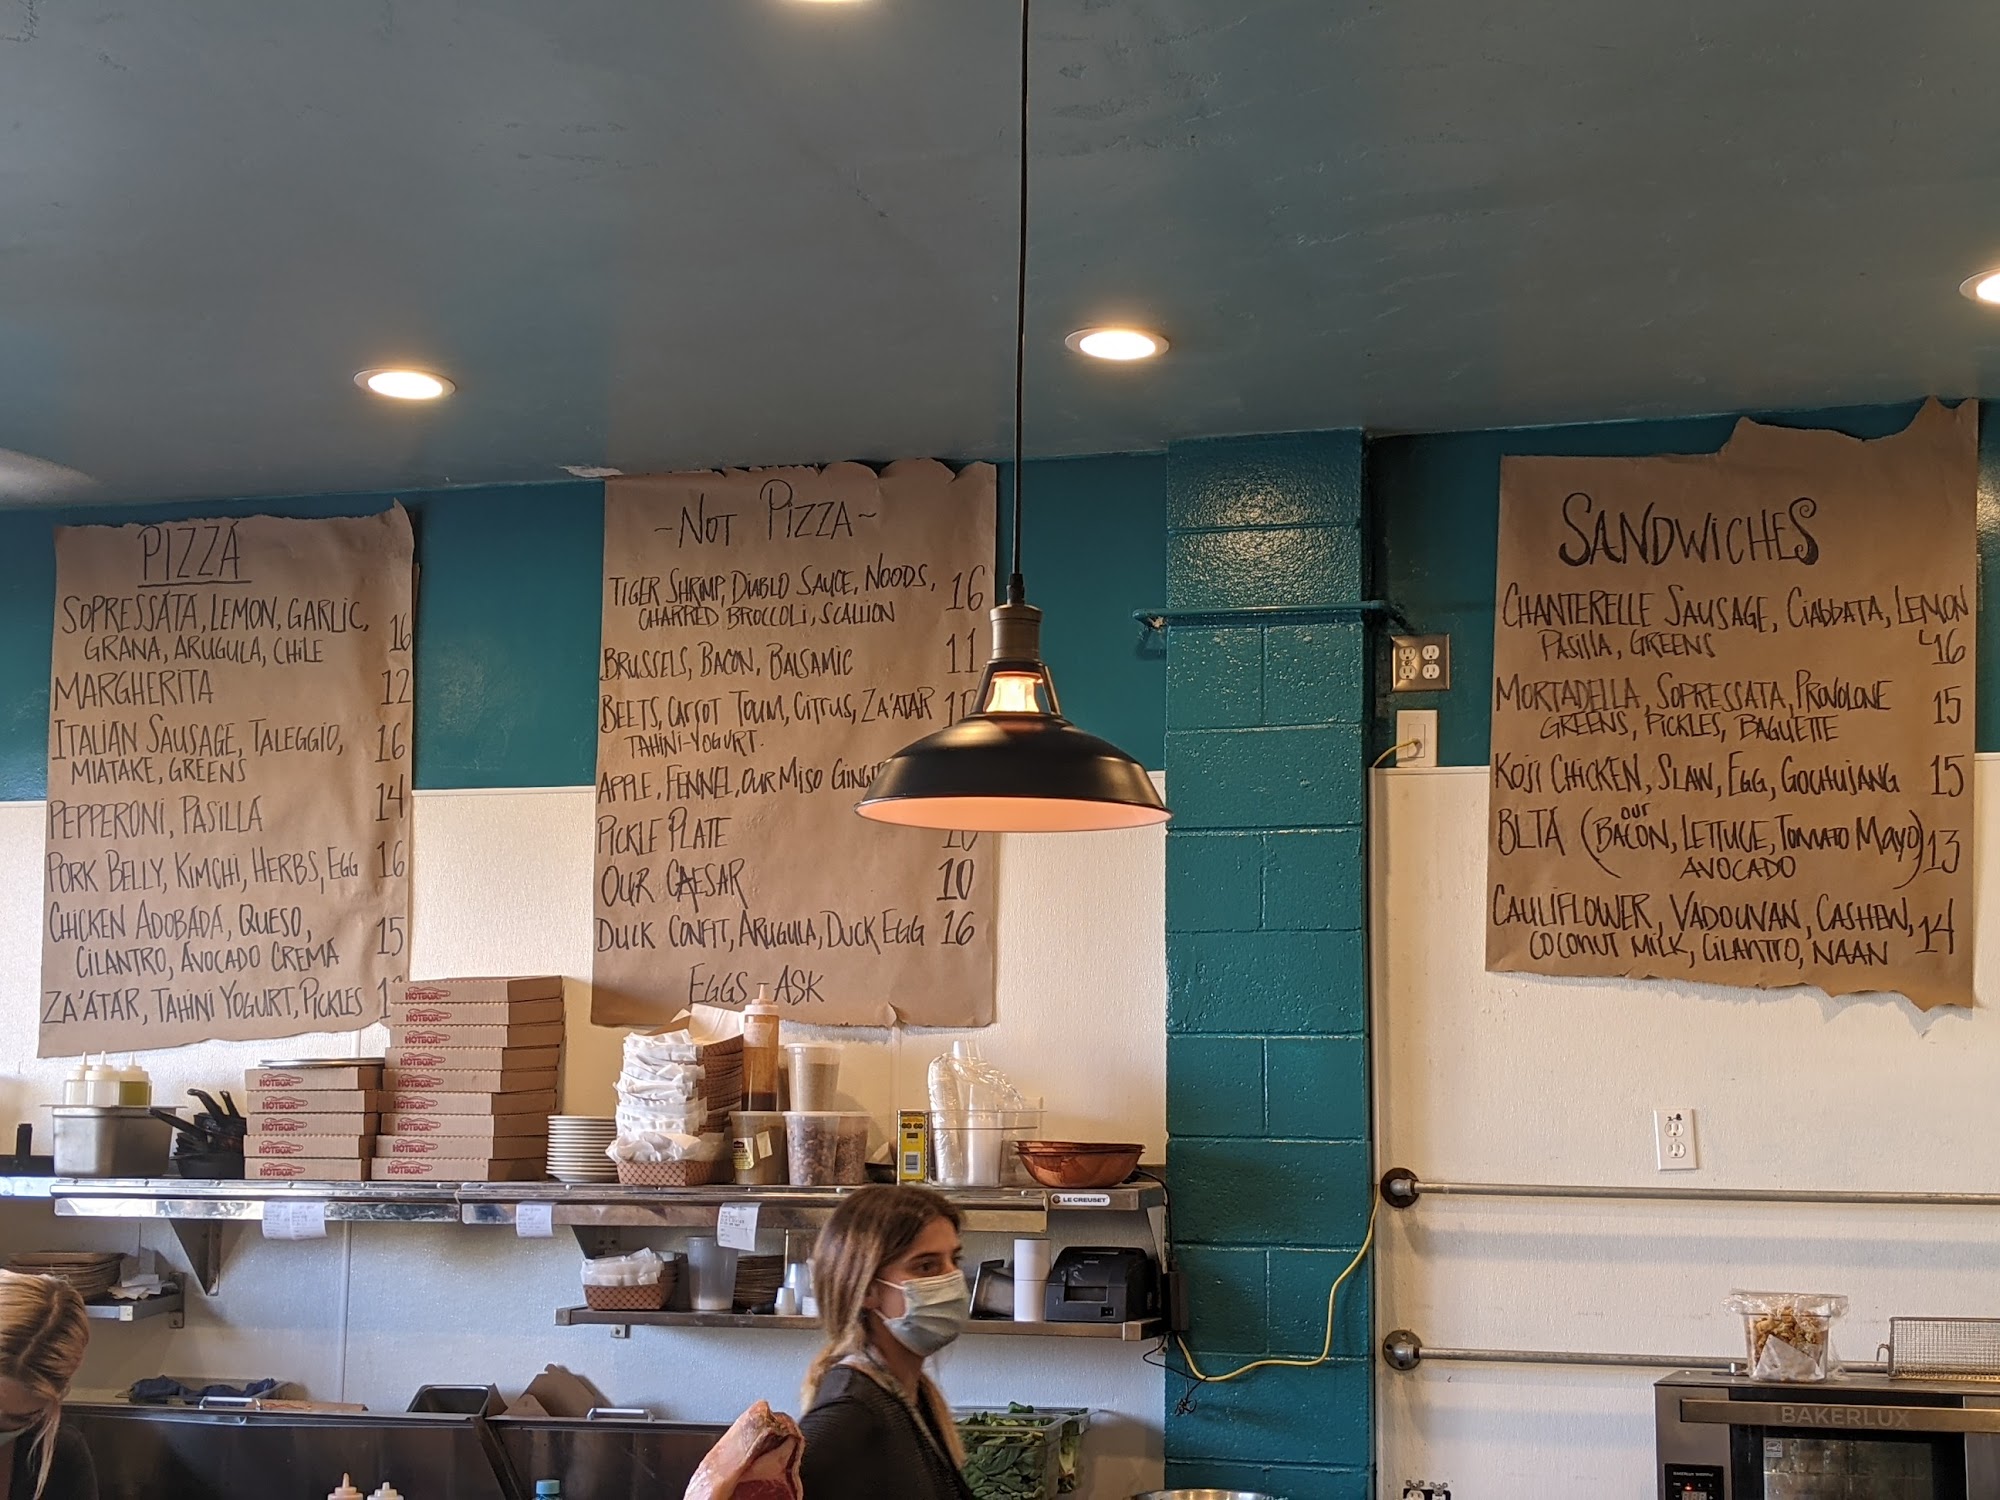 PIZZA
SOPRESSATA, LEMON, GARLIC,
GRANA, ARUGULA, CHILE 16
MARGHERITA 12
ITALIAN SAUSAGE, TALEGGIO,
MIATAKE, GREENS 16
PEPPERONI, PASILLA 14
PORK BELLY, KIMCHI, HERBS, EGG 16
CHICKEN ADOBADA, QUESO,
CILANTRO, AVOCADO CREMA 15
ZA'ATAR, TAHINI YOGURT, PICKLES
~NOT PIZZA~
TIGER SHRIMP, DIABLO SAUCE, NOODS,
CHARRED BROCCOLI, SCALLION 16
BRUSSELS, BACON, BALSAMIC 11
BEETS, CARROT TOUM, CITRUS, ZA'ATAR
TAHINI-YOGURT.
APPLE, FENNEL, OUR MISO
PICKLE PLATE 10
OUR CAESAR 10
DUCK CONFIT, ARUGULA, DUCK EGG 16
EGGS - ASK
SANDWICHES
CHANTERELLE SAUSAGE, CIABBATA, LEMON
PASILLA, GREENS 16
MORTADELLA, SOPRESSATA, PROVOLONE
GREENS, PICKLES, BAGUETTE 15
KOJI CHICKEN, SLAW, EGG, GOCHUJANG 15
BLTA (OUR BACON, LETTUCE, TOMATO MAYO
AVOCADO) 13
CAULIFLOWER, VADOUVAN, CASHEW,
COCONUT MILK, CILANTRO, NAAN 14
HOTBOX
HOTBOX
HOTBOX
HOTBOX
HOTBOX
HOTBOX
HOTBOX
HOTBOX
HOTBOX
HOTBOX
HOTBOX
HOTBOX
HOTBOX
LE CREUSET
BAKERLUX